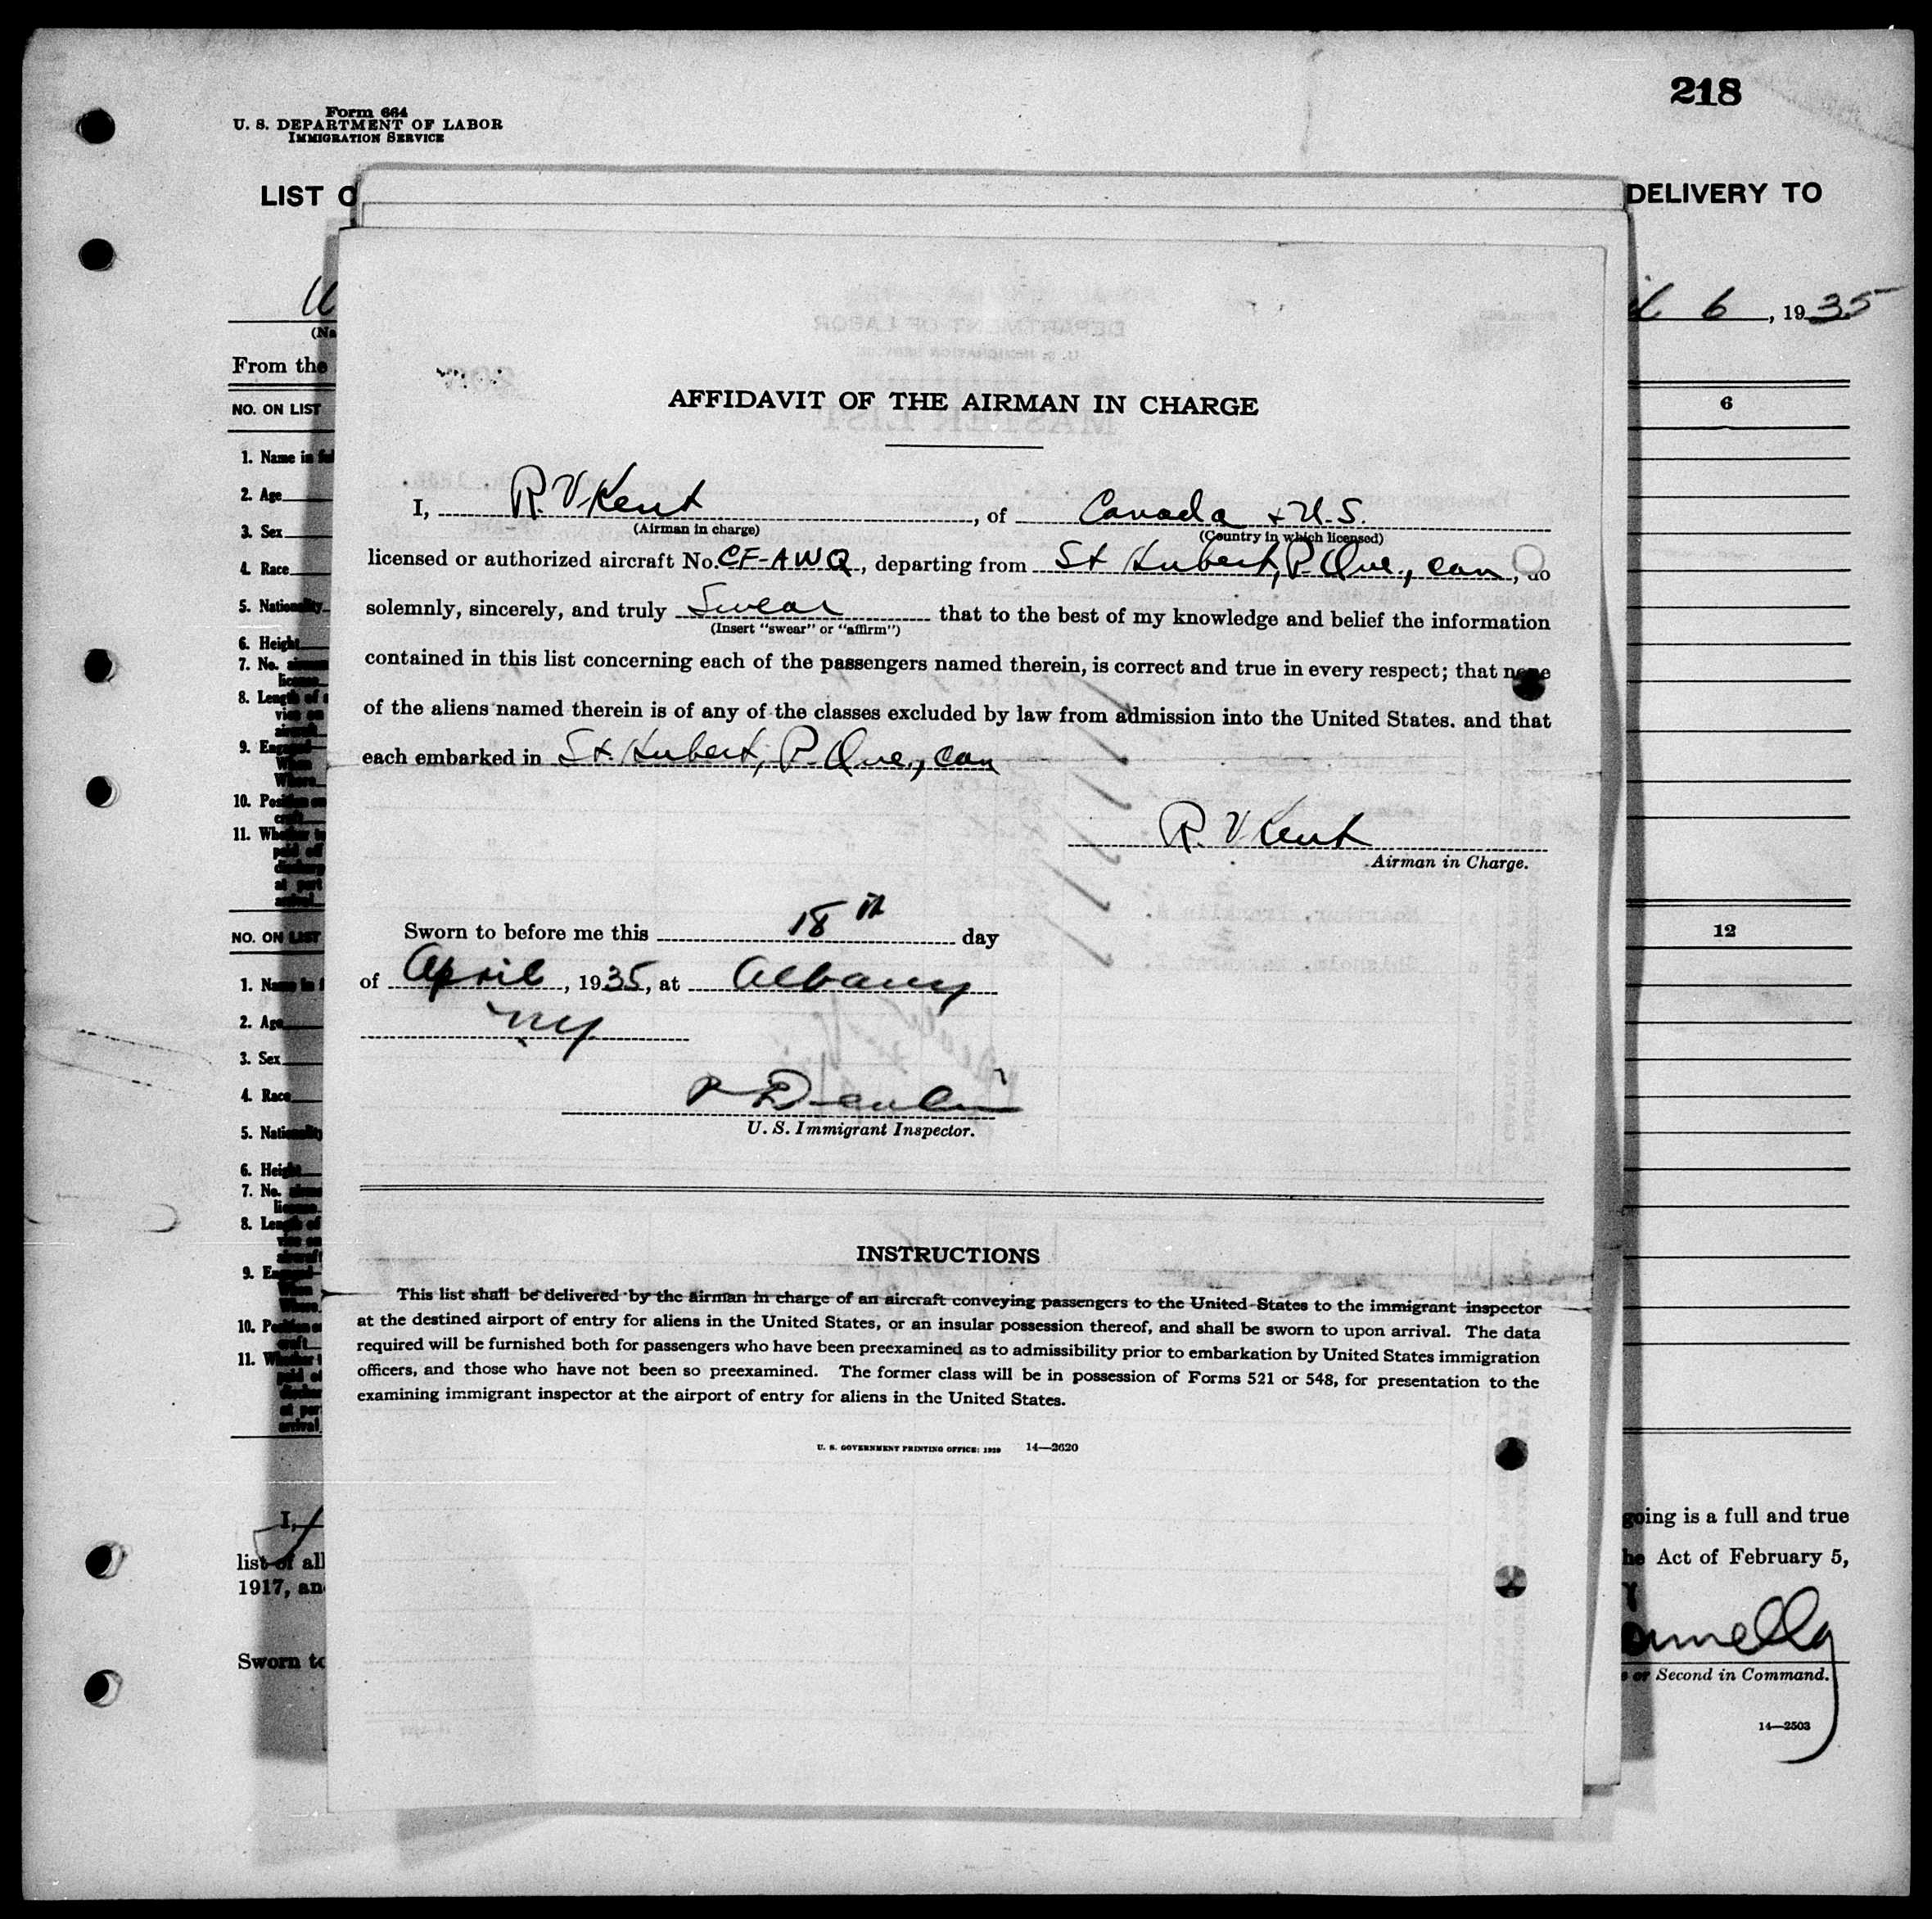 218
Form 664
U. S. DEPARTMENT OF LABOR
IMMIGRATION SERVICE
LIST O
DELIVERY TO
6, 1935
From the
NO. ON LIST
6
1. Name in
2. Age
3. Sex
4. Race
5. Nationality
6. Height
7. No.
license
8. Length of
9. Engaged
When
Where
10. Position
11. Whether
NO. ON LIST
12
1. Name in
2. Age
3. Sex
4. Race
5. Nationality
6. Height
7. No.
license
8. Length of
aircraft
9. Engaged
When
Where
10. Position
11. Whether
arrival
AFFIDAVIT OF THE AIRMAN IN CHARGE
I, R. V Kent, of Canada + U.S.
(Airman in charge) (Country in which licensed)
licensed or authorized aircraft No. CF-AWQ, departing from St Hubert, P. Que., can, do
solemnly, sincerely, and truly Swear that to the best of my knowledge and belief the information
(Insert "swear" or "affirm")
contained in this list concerning each of the passengers named therein, is correct and true in every respect; that none
of the aliens named therein is of any of the classes excluded by law from admission into the United States. and that
each embarked in St. Hubert, P. Que., can
R. V Kent
Airman in Charge.
Sworn to before me this 18th day
of April, 1935, at Albany
NY
U. S. Immigrant Inspector.
INSTRUCTIONS
This list shall be delivered by the airman in charge of an aircraft conveying passengers to the United States to the immigrant inspector
at the destined airport of entry for aliens in the United States, or an insular possession thereof, and shall be sworn to upon arrival. The data
required will be furnished both for passengers who have been preexamined as to admissibility prior to embarkation by United States immigration
officers, and those who have not been so preexamined. The former class will be in possession of Forms 521 or 548, for presentation to the
examining immigrant inspector at the airport of entry for aliens in the United States.
U. S. GOVERNMENT PRINTING OFFICE: 1929 14—2620
I,
going is a full and true
list of all
he Act of February 5,
1917, an
Sworn to
or Second in Command.
14—2503